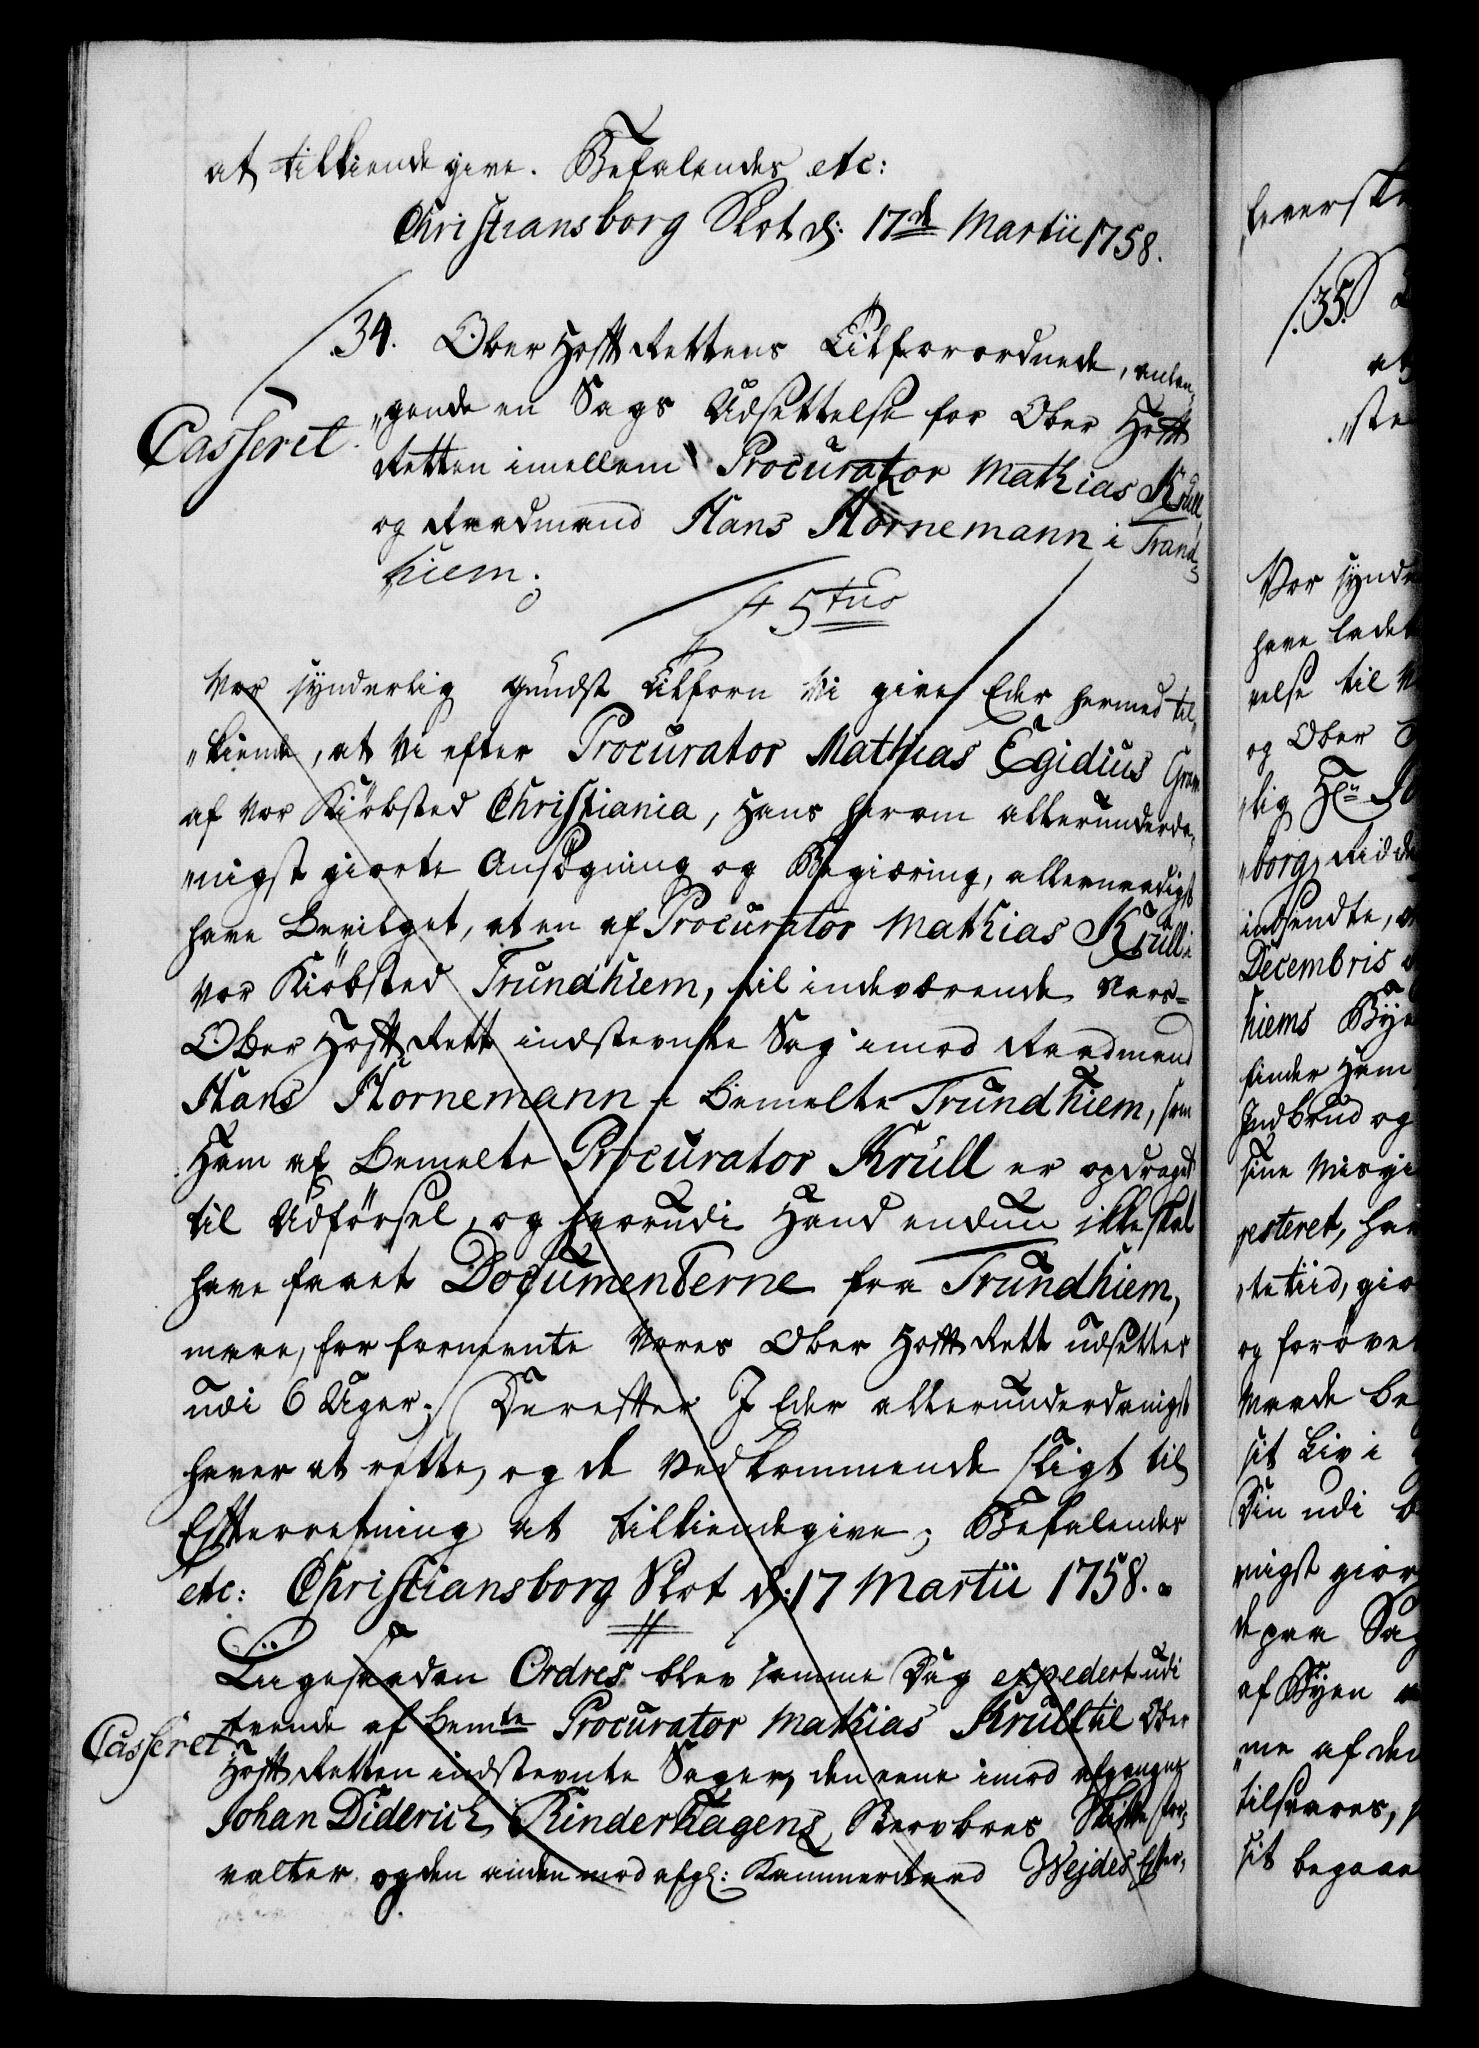 at tilkiende give. Befalendes etc:
Christiansborg Slot d: 17de Martii 1758.
34. Ober Hoff Rettens Tilforordnede, anlan„
„gende en Sags Udsettelse for Ober Hoff
Casseret.
Retten imellem Procurator Mathias Krüll
og Raadmand Hans Hornemann i Trund„
hiem.
Vor synderlig Gundst Tilforn Vi give Eder hermed til„
„kiende, at Vi efter Procurator Mathias Egidius
af vor Kiöbsted Christiania, Hans herom allerunderda„
„nigst giorte Ansögning og Begiæring, allernaadigst
have bevilget, at en af Procurator Mathias Krüll i
vor Kiöbsted Trundhiem, til indeværende Aars=
Ober Hoff Rett indstevnte Sag imod Raadmand
Hans Hornemann i bemelte Trundhiem, som
Ham af bemelte Procurator Krüll er opdraget
til Udförsel, og hvorudi Hand endnu icke skal
have faaet Documenterne fra Trundhiem,
maae, for formente Vores Ober Hoff Rett udsettes
udi 6 Uger; Derefter I Eder allerunderdanigst
haver at rette, og de Vedkommende sligt til
Efterretning at tilkiendegive; Befalendes
etc: Christiansborg Slot d: 17 Martii 1758.
Liigesaadan Ordres blev samme Dag expedert udi
tvende af bemte Procurator Mathias Krull til Ober
Casseret
Hoff Retten indstevnte Sager, den eene imod afgangne
Johan Diderich Rinderhagens Stervboes Skifte for„
valter, og den anden mod afg: Kammerraad Wejdes Efter„
leverske
35.
Vor synde
have ladet
velse til
og Ober
„lig Hr
„borg, Ridde
indsendte,
Decembris
hiems Bye
finder Ham
Indbrud og
sine Misgi
pesteret,
„te tiid, gio
og foröve
Maade be
sit Liv i
Din udi
nigst gior
de paa Sag
af Byen
me af den
tilsvares,
sit begaae